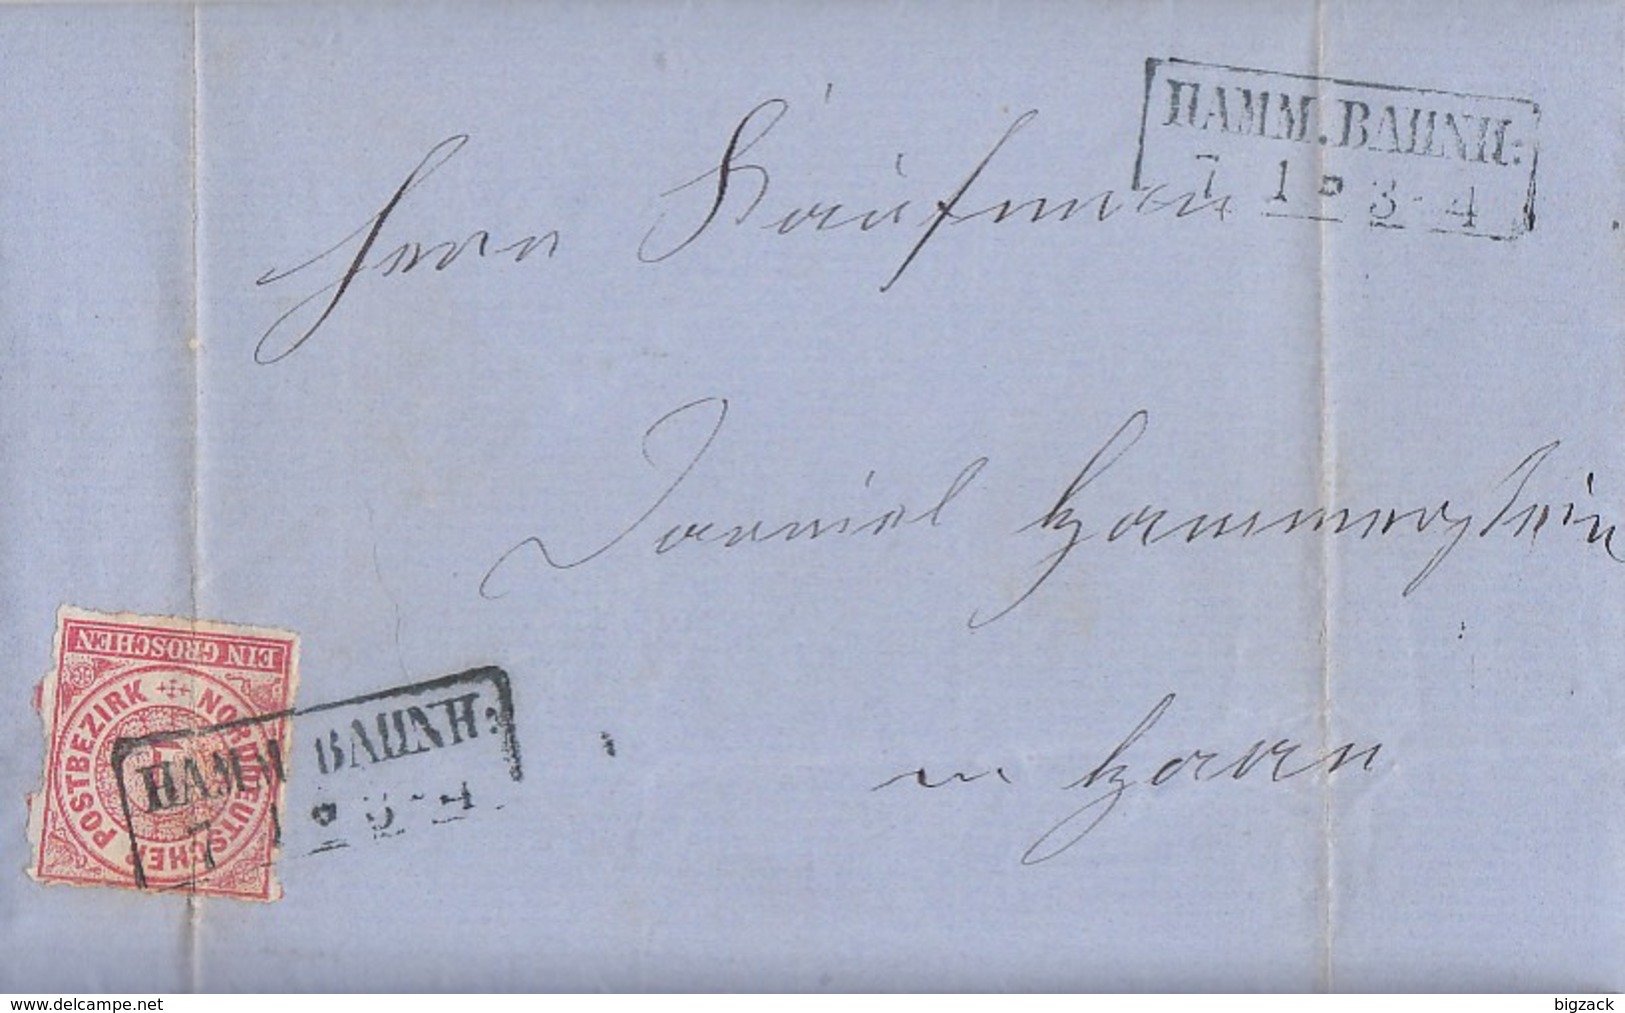 HAMM. BAHNH:
7 1 * 3-4
Herrn Kaufmann
Daniel Hammerstein
in Horn
EIN GROSCHEN
NORDDEUTSCHER POSTBEZIRK
1
HAMM. BAHNH:
7 1 * 3-4
www.delcampe.net
bigzack